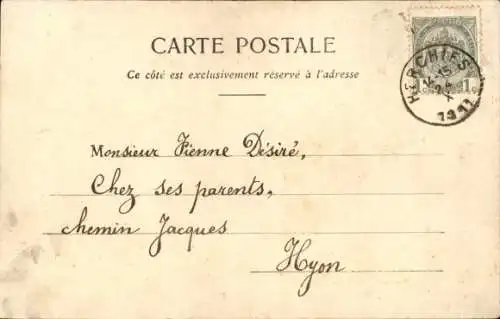 CARTE POSTALE
Ce côté est exclusivement réservé à l'adresse
HERCHIES
1911
1 1
Monsieur Fienne Désiré,
Chez ses parents,
chemin Jacques
Hyon